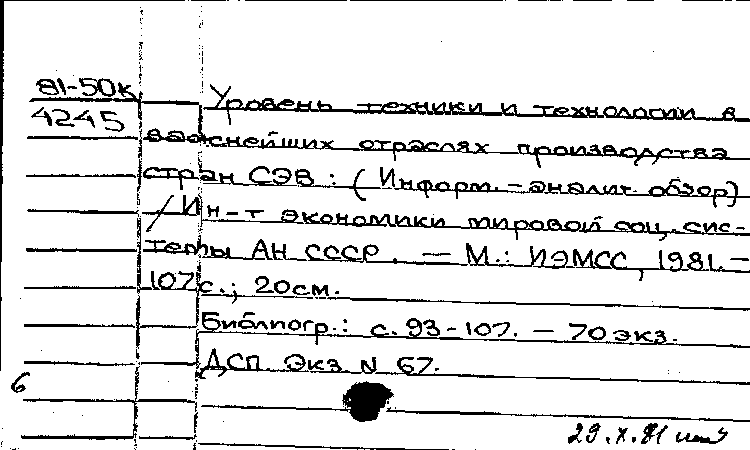 81-50к
4245
Уровень техники и технологии в
важнейших отраслях производства
стран СЭВ : ( Информ.-аналит. обзор)
/ Ин-т экономики мировой соц. сис-
темы АН СССР. — М.: ИЭМСС, 1981.—
107 с.; 20 см.
Библиогр.: с. 93-107. — 70 экз.
ДСП. Экз N 67.
6
29.X.81